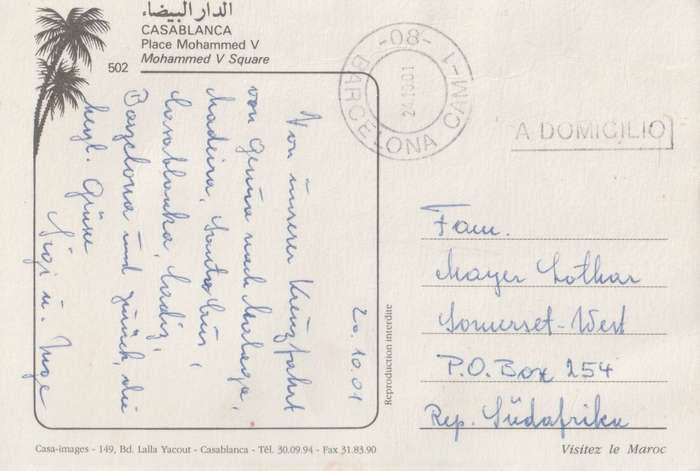 الدار البيضاء
CASABLANCA
Place Mohammed V
Mohammed V Square
502
20.10.01
Von unserer Kreuzfahrt
von Genua nach Malaga,
Madeira, Santa Cruz,
Casablanka, Cadiz,
Barzelona und zurück, die
herzl. Grüsse
Sigi u. Inge
BARCELONA CAM-1
-08-
24.10.01
A DOMICILIO
Fam.
Mayer Lothar
Somerset-West
P.O. Box 254
Rep. Südafrika
Reproduction interdite
Casa-images - 149, Bd. Lalla Yacout - Casablanca - Tél. 30.09.94 - Fax 31.83.90
Visitez le Maroc